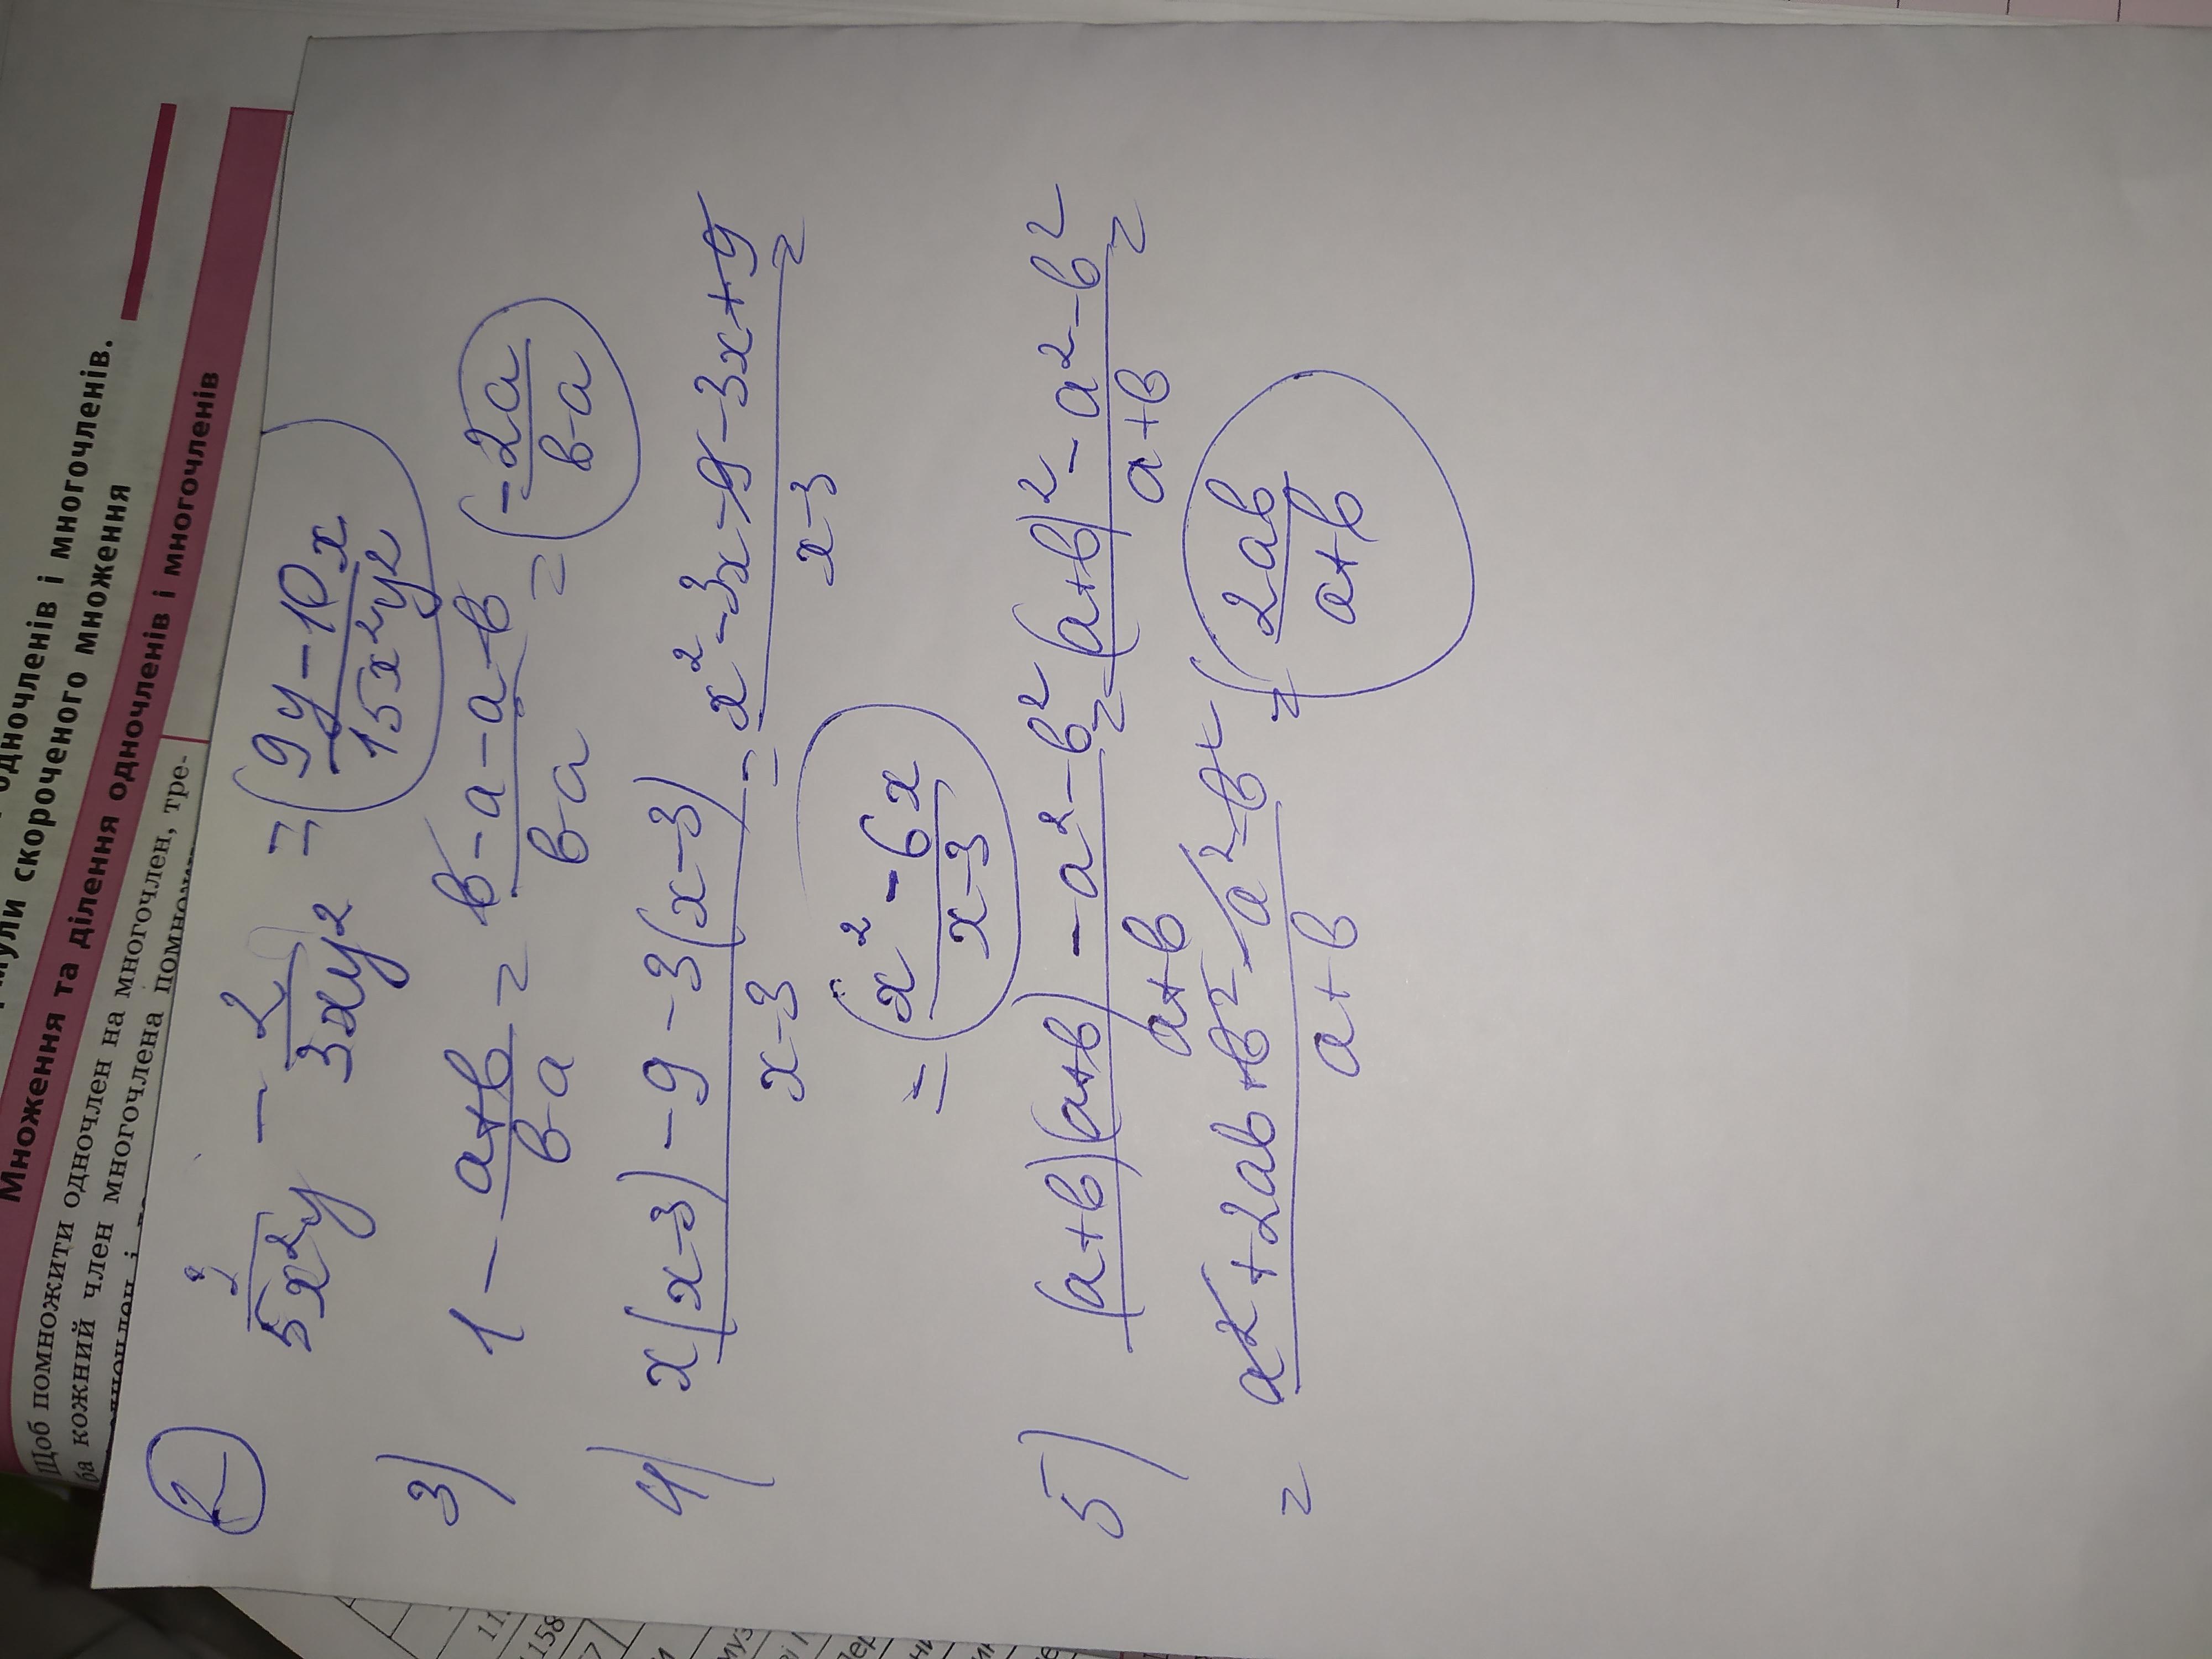 одночленів і многочленів.
мули скороченого множення
Множення та ділення одночленів і многочленів
Щоб помножити одночлен на многочлен, тре-
ба кожний член многочлена помножити
2 5x²y - 2/3xy² = 9y-10x/15x²y²
3) 1 - a+b/b-a = b-a-a-b/b-a = -2a/b-a
4) x(x-3)-9-3(x-3)/x-3 = x²-3x-9-3x+9/x-3 =
= x²-6x/x-3
5) (a+b)(a+b)-a²-b²/a+b = (a+b)²-a²-b²/a+b =
= a²+2ab+b²-a²-b²/a+b = 2ab/a+b
11
1158